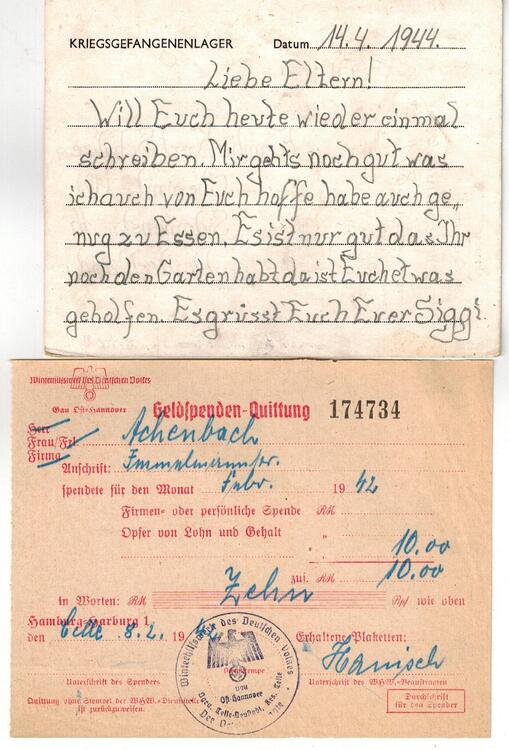 KRIEGSGEFANGENENLAGER Datum 14.4.1944.
Liebe Eltern!
Will Euch heute wieder einmal
schreiben. Mir gehts noch gut was
ich auch von Euch hoffe habe auch ge„
nug zu Essen. Es ist nur gut das Ihr
noch den Garten habt da ist Euch etwas
geholfen. Es grüsst Euch Euer Siggi.
Winterhilfswerk des Deutschen Volkes
Gau Ost-Hannover
Geldspenden-Quittung 174734
Herr
Frau/Frl. Achenbach
Firma
Anschrift: Immelmannstr.
spendete für den Monat Febr. 1942
Firmen- oder persönliche Spende RM
Opfer von Lohn und Gehalt " 10.00
zus. RM 10.00
in Worten: RM Zehn Rpf wie oben
Hamburg-Harburg 1
den Celle 8.2. 1942 Erhaltene Plaketten:
Hanisch
Winterhilfswerk des Deutschen Volkes
Ost-Hannover
Unterschrift des Spenders Unterschrift des WHW.-Beauftragten
Quittung ohne Stempel der WHW.-Dienststelle
ist zurückzuweisen.
Durchschrift
für den Spender